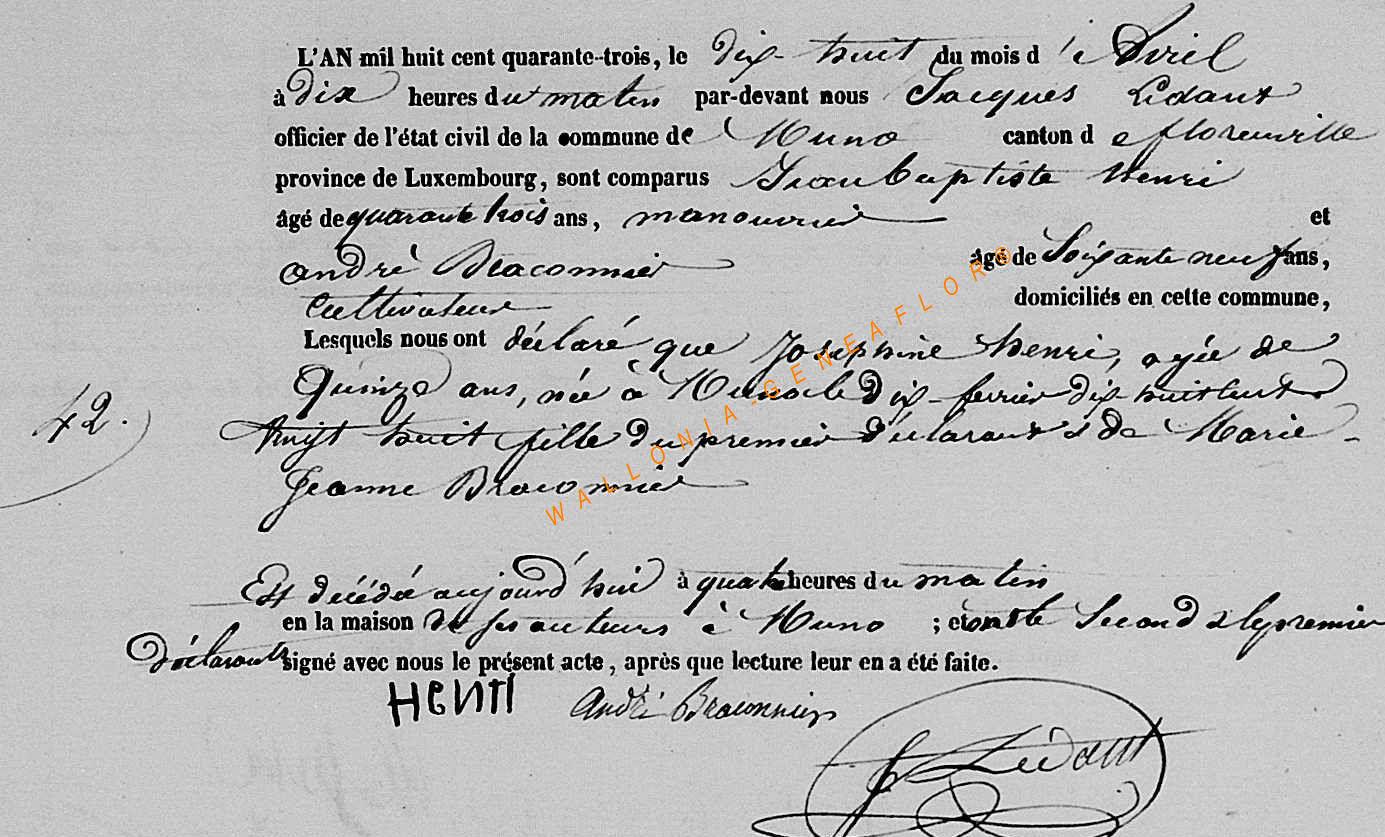 L'AN mil huit cent quarante-trois, le dix-huit du mois d'Avril
à dix heures du matin par-devant nous Jacques Lidant
officier de l'état civil de la commune de Muno canton de florenville
province de Luxembourg, sont comparus Jean baptiste henri
âgé de quarante trois ans, manouvrier et
andré Braconnier âgé de Soixante neuf ans,
Cultivateur domiciliés en cette commune,
Lesquels nous ont déclaré que Josephine henri, agée de
Quinze ans, née à Muno le dix-fevrier dix-huit cent
42. Vingt huit fille du premier déclarant & de Marie-
Jeanne Braconnier
Est décédée aujourd'hui à quatre heures du matin
en la maison de ses auteurs à Muno ; et ont le Second & le premier
déclarants signé avec nous le présent acte, après que lecture leur en a été faite.
HENRI André Braconnier
J Lidant
WALLONIA-GENEAFLORE